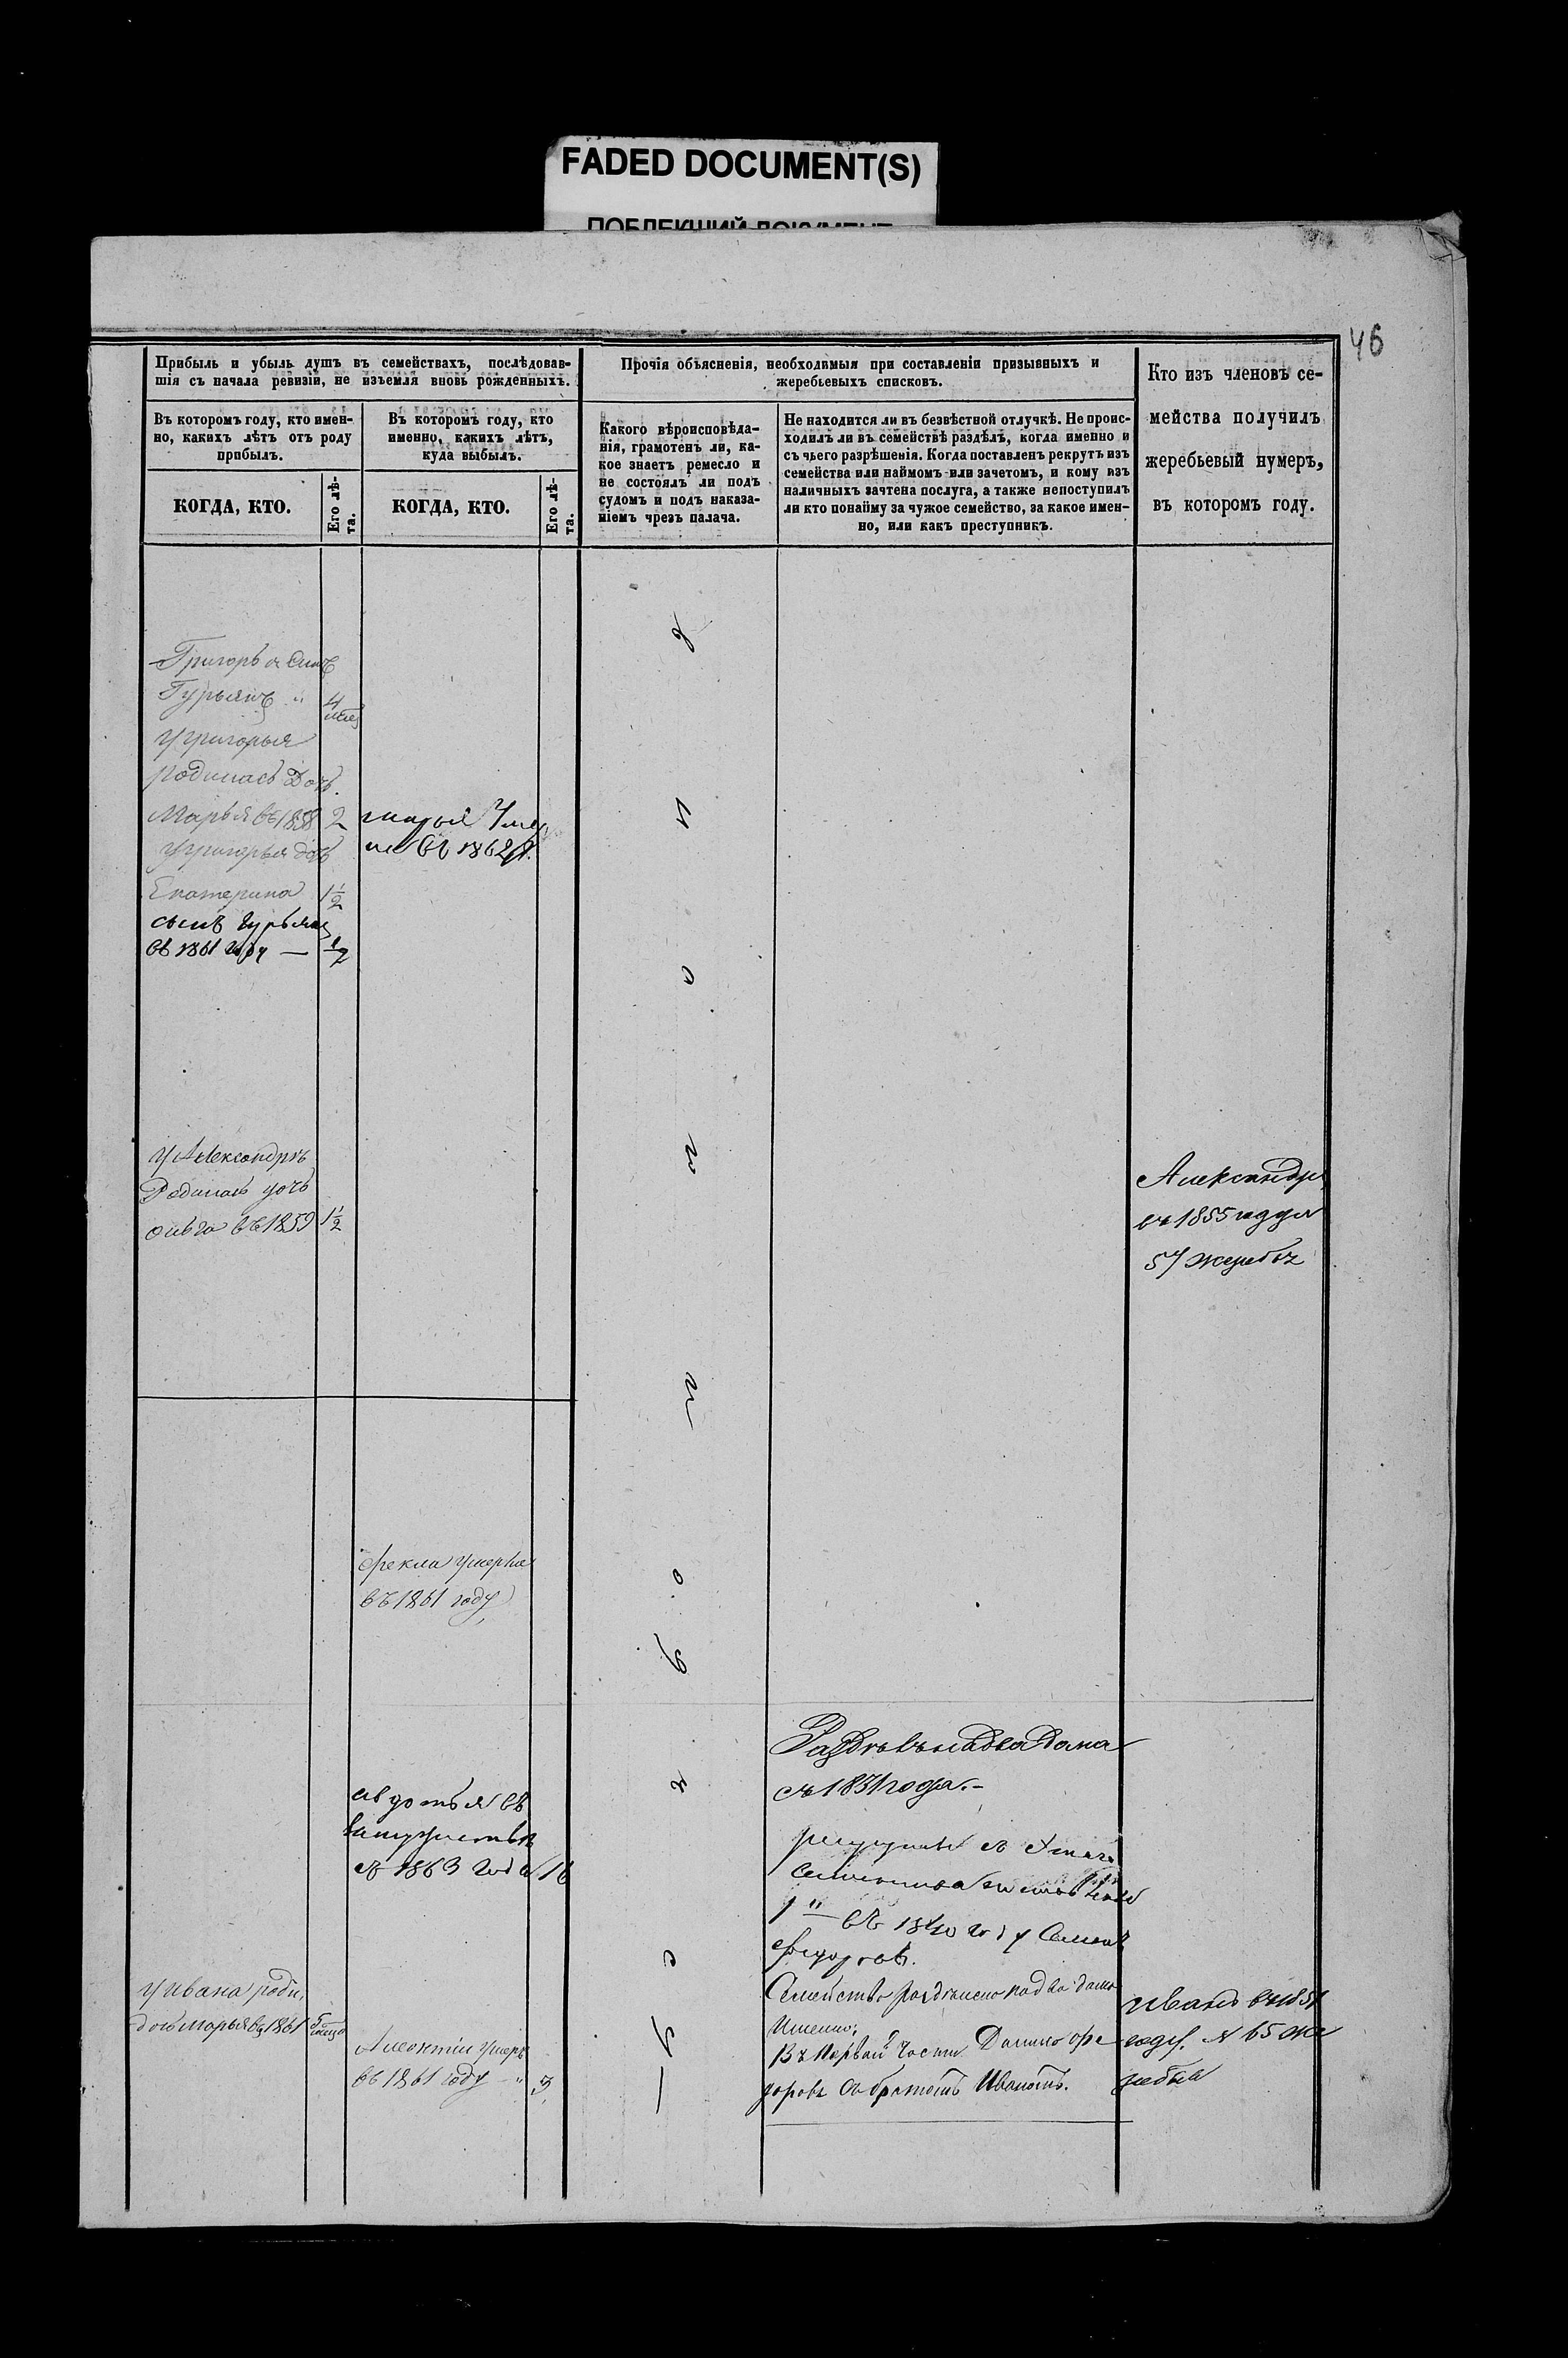 FADED DOCUMENT(S)
ПОБЛЕКШИЙ ДОКУМЕНТ
46
Прибыль и убыль душъ въ семействахъ, послѣдовав-
шія съ начала ревизіи, не изъемля вновь рожденныхъ.
Въ которомъ году, кто имен-
но, какихъ лѣтъ отъ роду
прибылъ.
КОГДА, КТО.
Его лѣ-
та.
Въ которомъ году, кто
именно, какихъ лѣтъ,
куда выбылъ.
КОГДА, КТО.
Его лѣ-
та.
Прочія объясненія, необходимыя при составленіи призывныхъ и
жеребьевыхъ списковъ.
Какого вѣроисповѣда-
нія, грамотенъ ли, ка-
кое знаетъ ремесло и
не состоялъ ли подъ
судомъ и подъ наказа-
ніемъ чрезъ палача.
Не находится ли въ безвѣстной отлучкѣ. Не проис-
ходилъ ли въ семействѣ раздѣлъ, когда именно и
съ чьего разрѣшенія. Когда поставленъ рекрутъ изъ
семейства или наймомъ или зачетомъ, и кому изъ
наличныхъ зачтена послуга, а также непоступилъ
ли кто понайму за чужое семейство, за какое имен-
но, или какъ преступникъ.
Кто изъ членовъ се-
мейства получилъ
жеребьевый нумеръ,
въ которомъ году.
Григорья сынъ
Гурьянъ " 4
у григорья
родилась Дочь
Марья въ 1858 2
у григорья дочь
Екатерина 1½
сынъ гурьянъ
въ 1861 году — ½
марья Умер
ла въ 1862 г.
у Александра
Родилась дочь
ольга въ 1859 1½
Александръ
въ 1855 году
57 жеребъ
фекла умерла
въ 1861 году
Раздѣлъ на два дома
съ 1831 года.-
авдотья въ
замужествѣ
съ 1863 года 16
въ 1840 году Семенъ
федоровъ.
Семейство раздѣлено на два дома
Именно:
Въ Первой части Данило фе-
доровъ съ братомъ Иваномъ.
у ивана роди.
дочь марья въ 1861 5
Алексѣй умеръ
въ 1861 году " 3
иванъ въ 1851
году. № 65 же
ребій